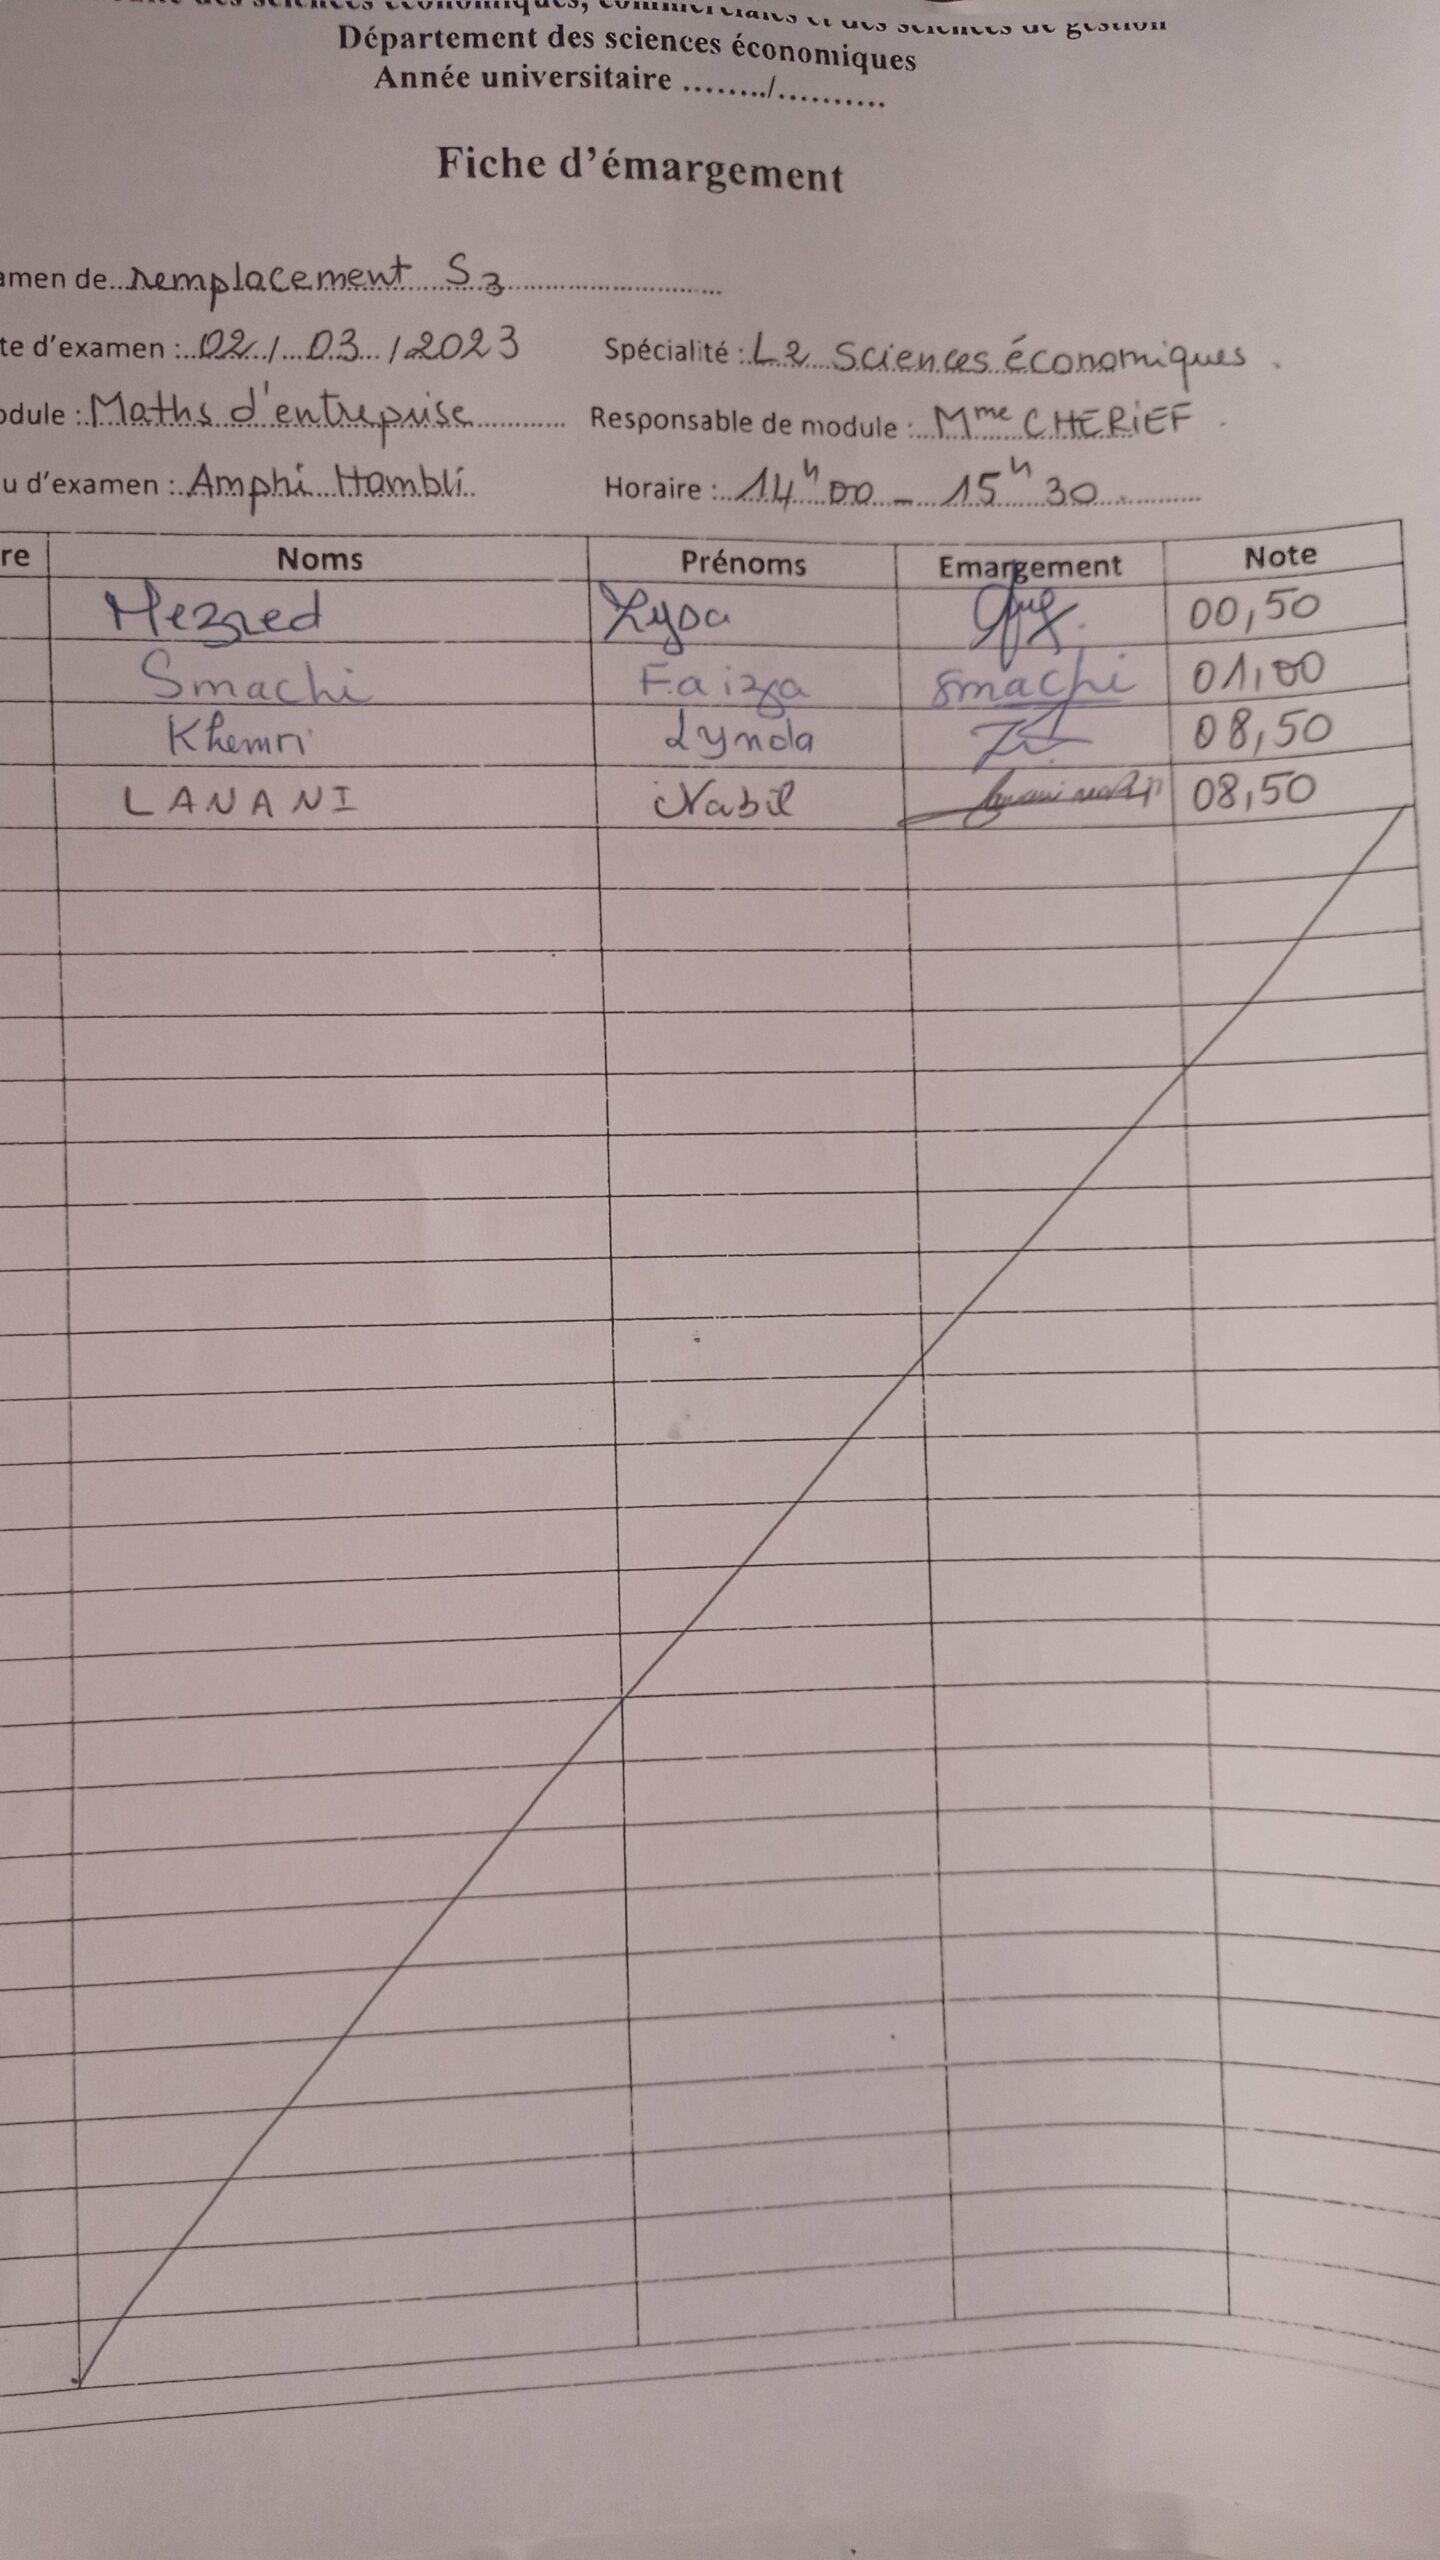 des sciences économiques, commerciales et des sciences de gestion
Département des sciences économiques
Année universitaire ......../..........
Fiche d'émargement
amen de remplacement S3
te d'examen : 02 / 03 / 2023 Spécialité : L2 Sciences économiques.
odule : Maths d'entreprise Responsable de module : Mme CHERiEF.
u d'examen : Amphi Hambli Horaire : 14h00 - 15h30.
re Noms Prénoms Emargement Note
Mezred Lyda 00,50
Smachi Faiza Smachi 01,00
Khemri Lynda 08,50
LANANI Nabil 08,50